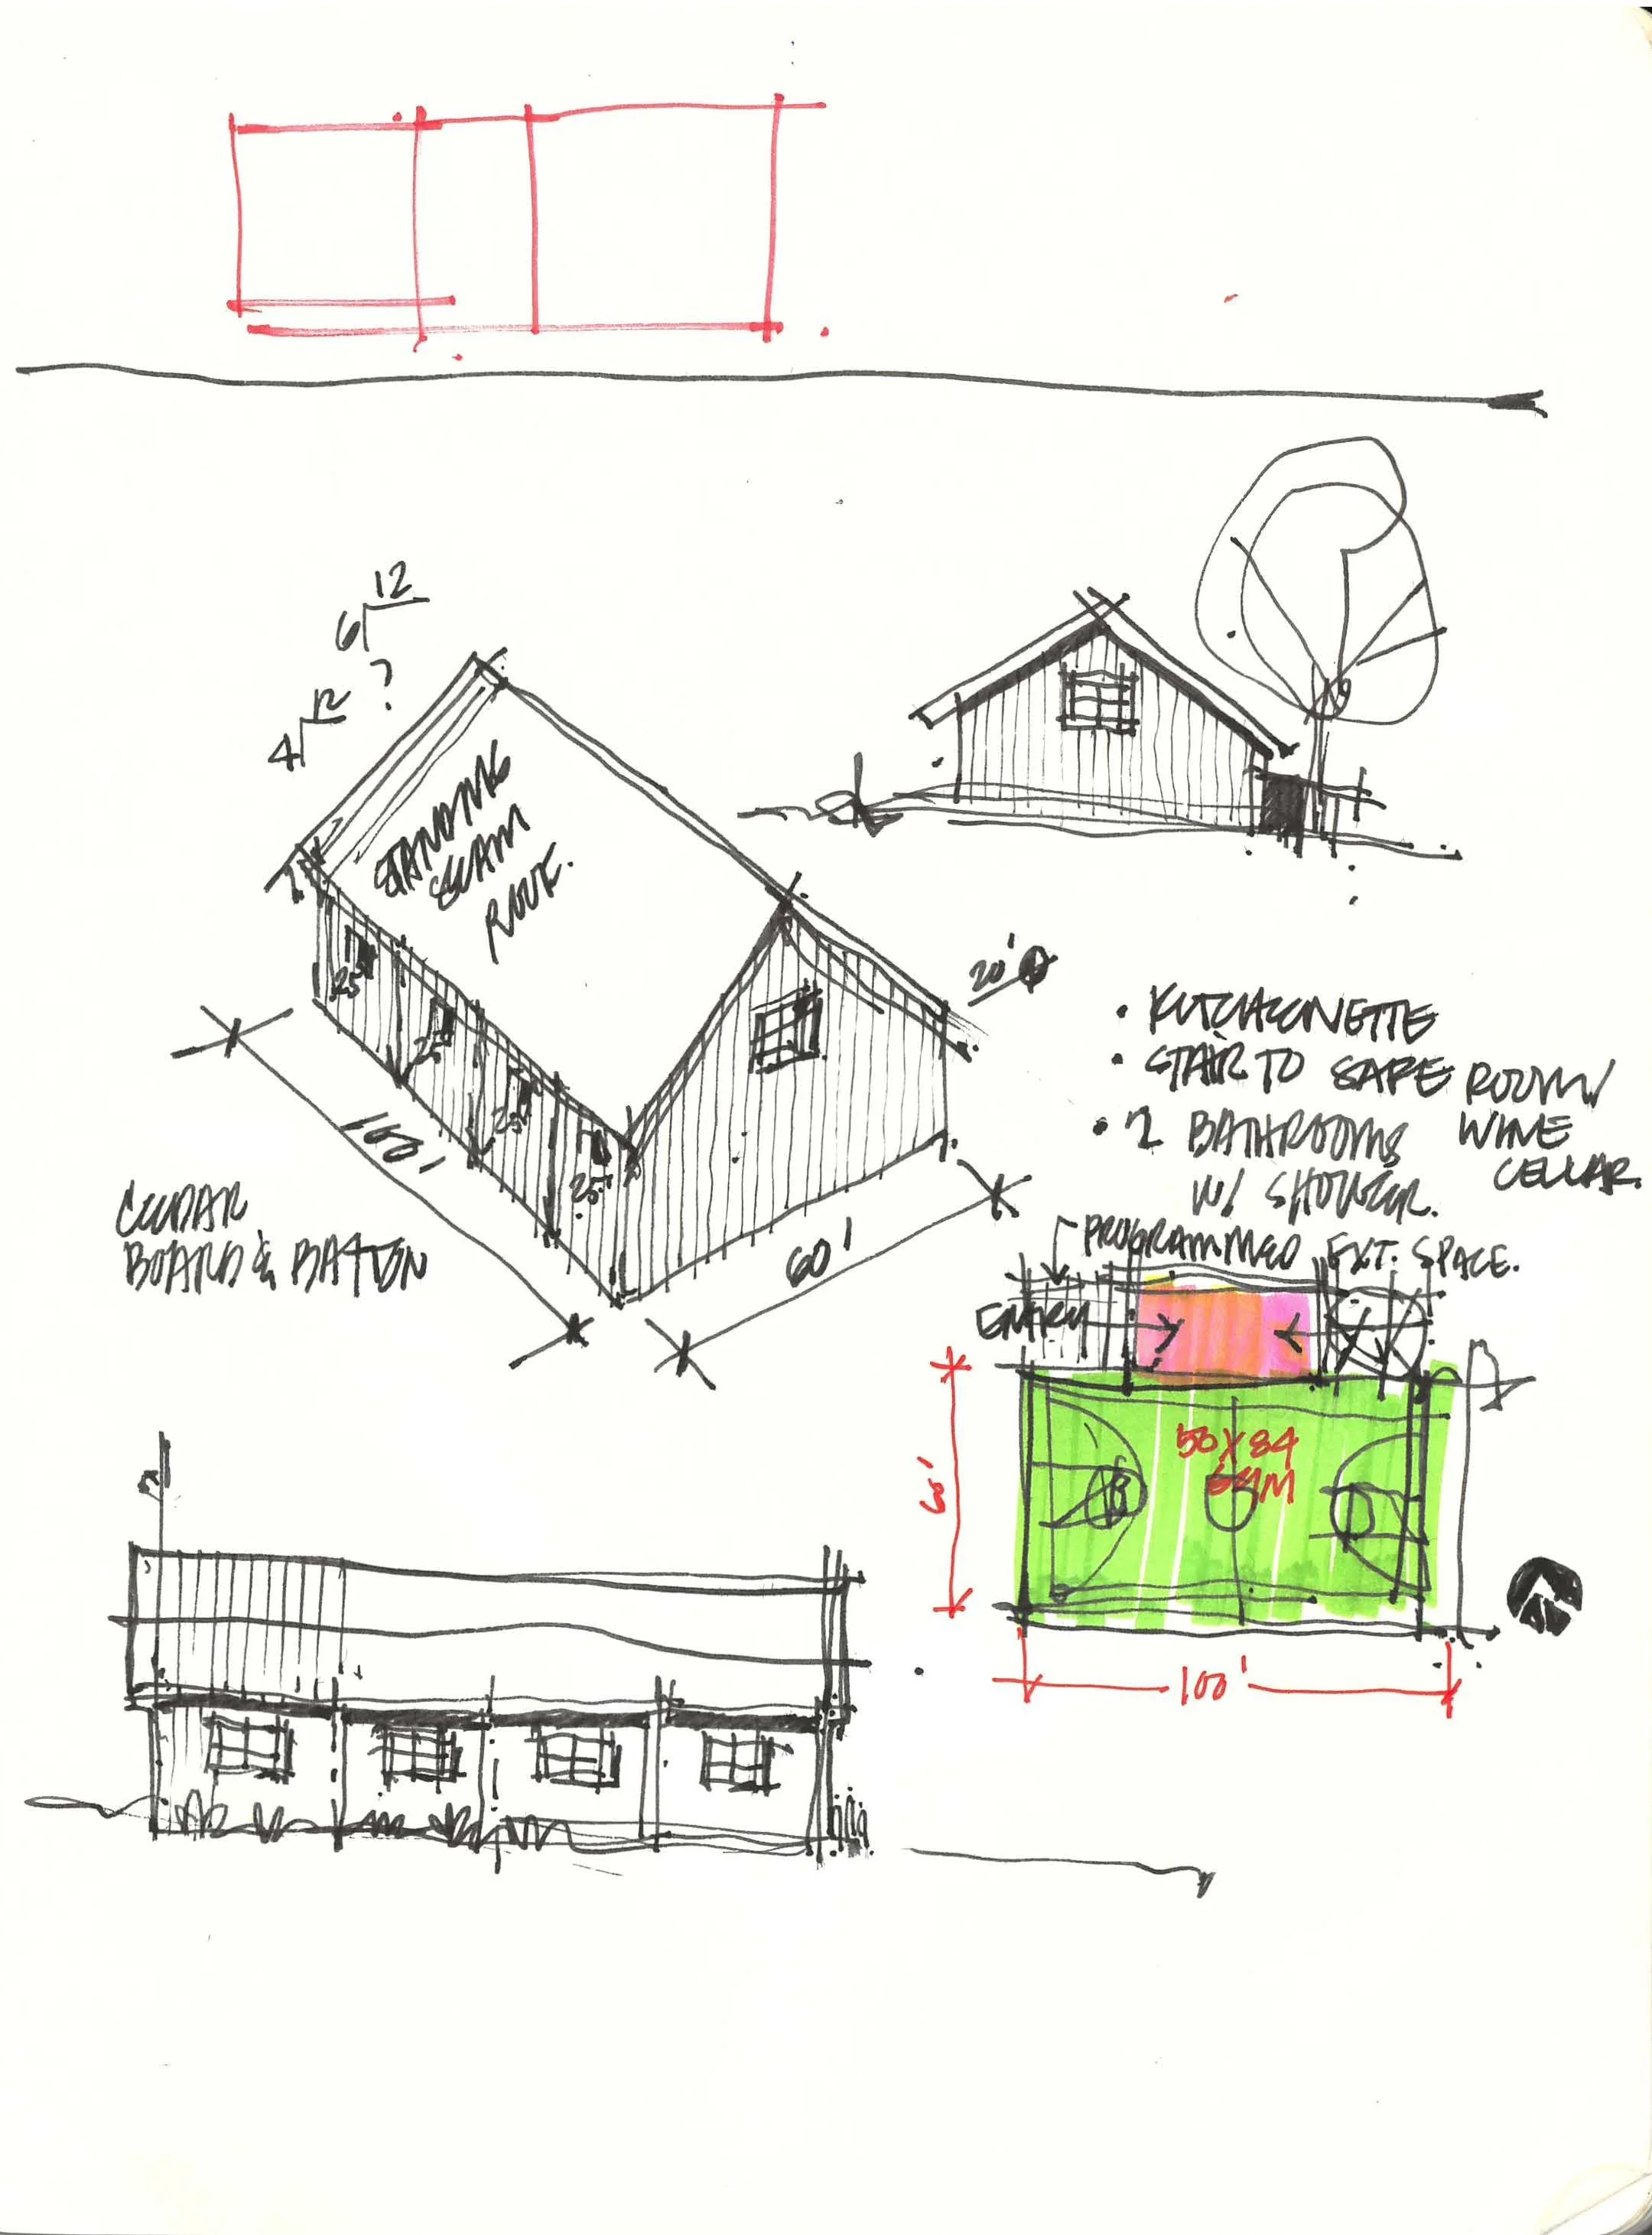 12
6
?
12
4
STANDING
SEAM
ROOF.
25'
25'
25'
25'
20'
100'
60'
CEDAR
BOARD & BATTON
• KITCHENETTE
• STAIR TO SAFE ROOM/
WINE
CELLAR.
• 2 BATHROOMS
W/ SHOWER.
PROGRAMMED EXT. SPACE.
ENTRY
60'
50 X 84
GYM
100'